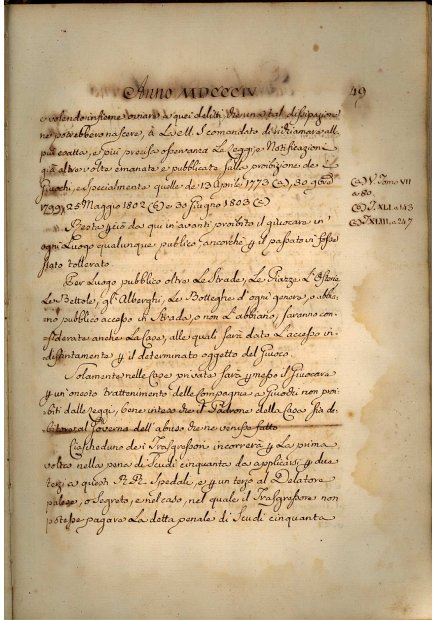 Anno MDCCCIV
49
e volendo insieme ovviare a quei delitti che una tal dissipazione
ne potrebbero nascere, à La ell. S comandato di richiamare all
più esatta, e più precisa osservanza Le Leggi, e Notificazioni
già altre volte emanate e pubblicate sulla proibizione de
Giuochi, e specialmente quelle de 13 Aprile 1773 (a), 30
1799, 25 Maggio 1802 (b) e 30 Giugno 1803 (c)
(a) V. Tomo VII
a 80.
(b) T. XLI. a 143
(c) T. XLIII. a 247
Resta da qui in avanti proibito il giuocare in
ogni Luogo qualunque pubblico ancorchè il passato vi fosse
stato tollerato.
Per Luogo pubblico oltre Le Strade, Le Piazze L'Osterie
Le Bettole, gl'Alberghi, Le Botteghe d'ogni genere, o abbia=
no pubblico accesso in Strada, o non L'abbiano, saranno con=
siderate anche La Case, alle quali sarà dato L'accesso in=
distintamente il determinato oggetto del Giuoco.
Solamente nelle Case private sarà messo il Giuocare
un'onesto trattenimento delle Compagnie a Giuochi non proi=
biti dalle Leggi, bene inteso che il Padrone della Casa sia de=
bitore al Governo dell'abuso che ne venisse fatto
Ciascheduno dei Trasgressori incorrerà La prima
volta nella pena di Scudi cinquanta da applicarsi due
terzi a questi R. R. Spedali, e un terzo al Delatore
palese, o segreto, e nel caso, nel quale il Trasgressore non
potesse pagare La detta penale di Scudi cinquanta